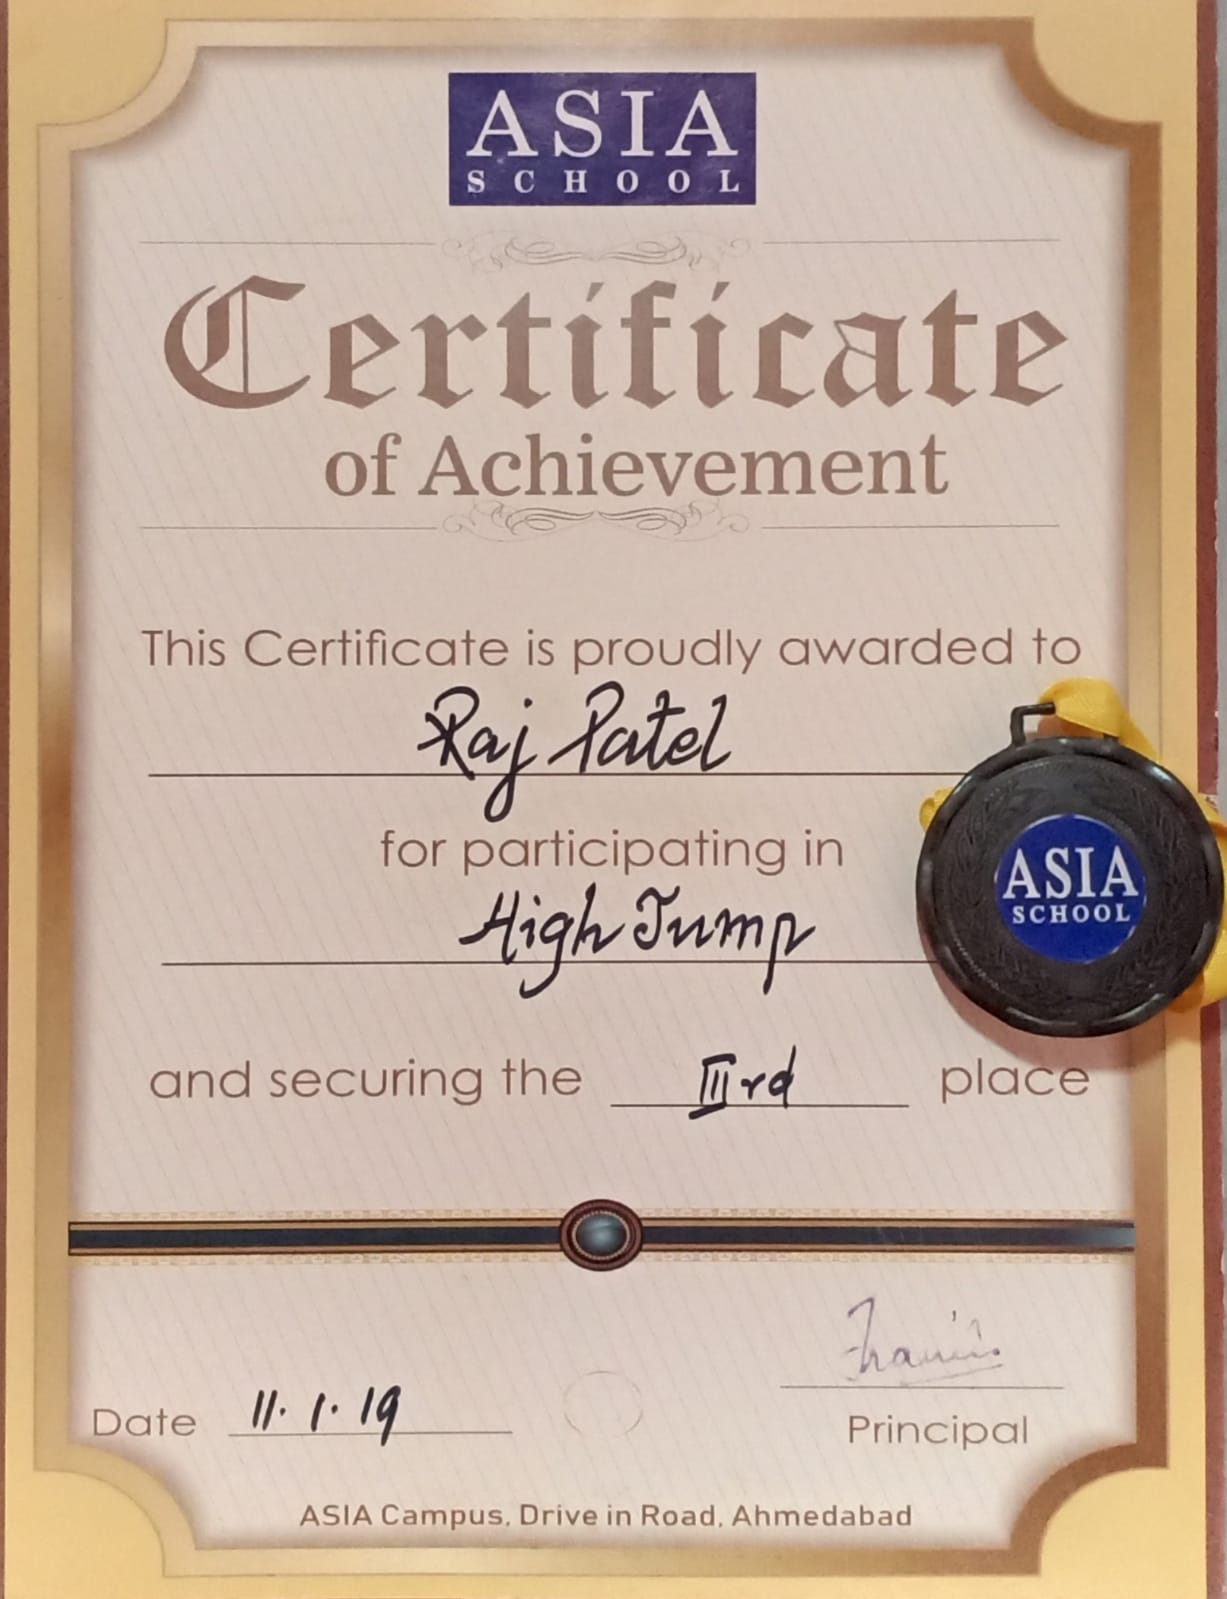 ASIA
SCHOOL
Certificate
of Achievement
This Certificate is proudly awarded to
Raj Patel
for participating in
High Jump
ASIA
SCHOOL
and securing the IIIrd place
Date 11.1.19
Principal
ASIA Campus, Drive in Road, Ahmedabad